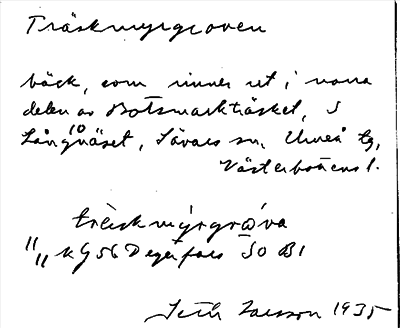 Träskmyrgroven
bäck, som rinner ut i norra
delen av Botsmarkträsket, S
Långnäset, Sävars sn, Umeå tg,
Västerbottens l.
träskmýrgrøva
K G 56 Degerfors SO B1
Seth Larsson 1935